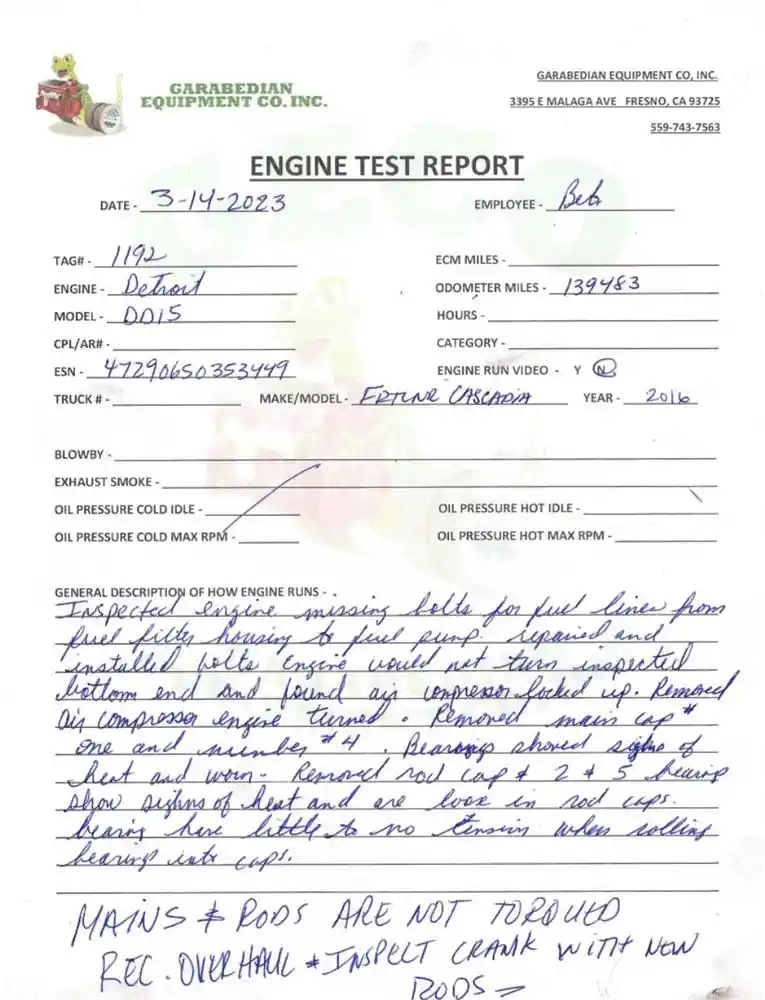 GARABEDIAN
EQUIPMENT CO. INC.
GARABEDIAN EQUIPMENT CO, INC.
3395 E MALAGA AVE FRESNO, CA 93725
559-743-7563
ENGINE TEST REPORT
DATE - 3-14-2023 EMPLOYEE -
TAG# - 1192 ECM MILES -
ENGINE - Detroit ODOMETER MILES - 139483
MODEL - DD15 HOURS -
CPL/AR# - CATEGORY -
ESN - 47290650353449 ENGINE RUN VIDEO - Y N
TRUCK # - MAKE/MODEL - FRTLNR CASCADIA YEAR - 2016
BLOWBY -
EXHAUST SMOKE -
OIL PRESSURE COLD IDLE - OIL PRESSURE HOT IDLE -
OIL PRESSURE COLD MAX RPM - OIL PRESSURE HOT MAX RPM -
GENERAL DESCRIPTION OF HOW ENGINE RUNS -
Inspected engine missing bolts for fuel lines from
fuel filter housing to fuel pump. repaired and
installed bolts engine would not turn inspected
bottom end and found air compressor locked up. Removed
air compressor engine turned. Removed main cap #
one and number #4. Bearings showed sighns of
heat and worn - Removed rod cap # 2 # 5 bearing
show sighns of heat and are loose in rod caps.
bearing have little to no tension when rolling
bearings into caps.
MAINS & RODS ARE NOT TORQUED
REC. OVERHAUL & INSPECT CRANK WITH NEW
RODS -